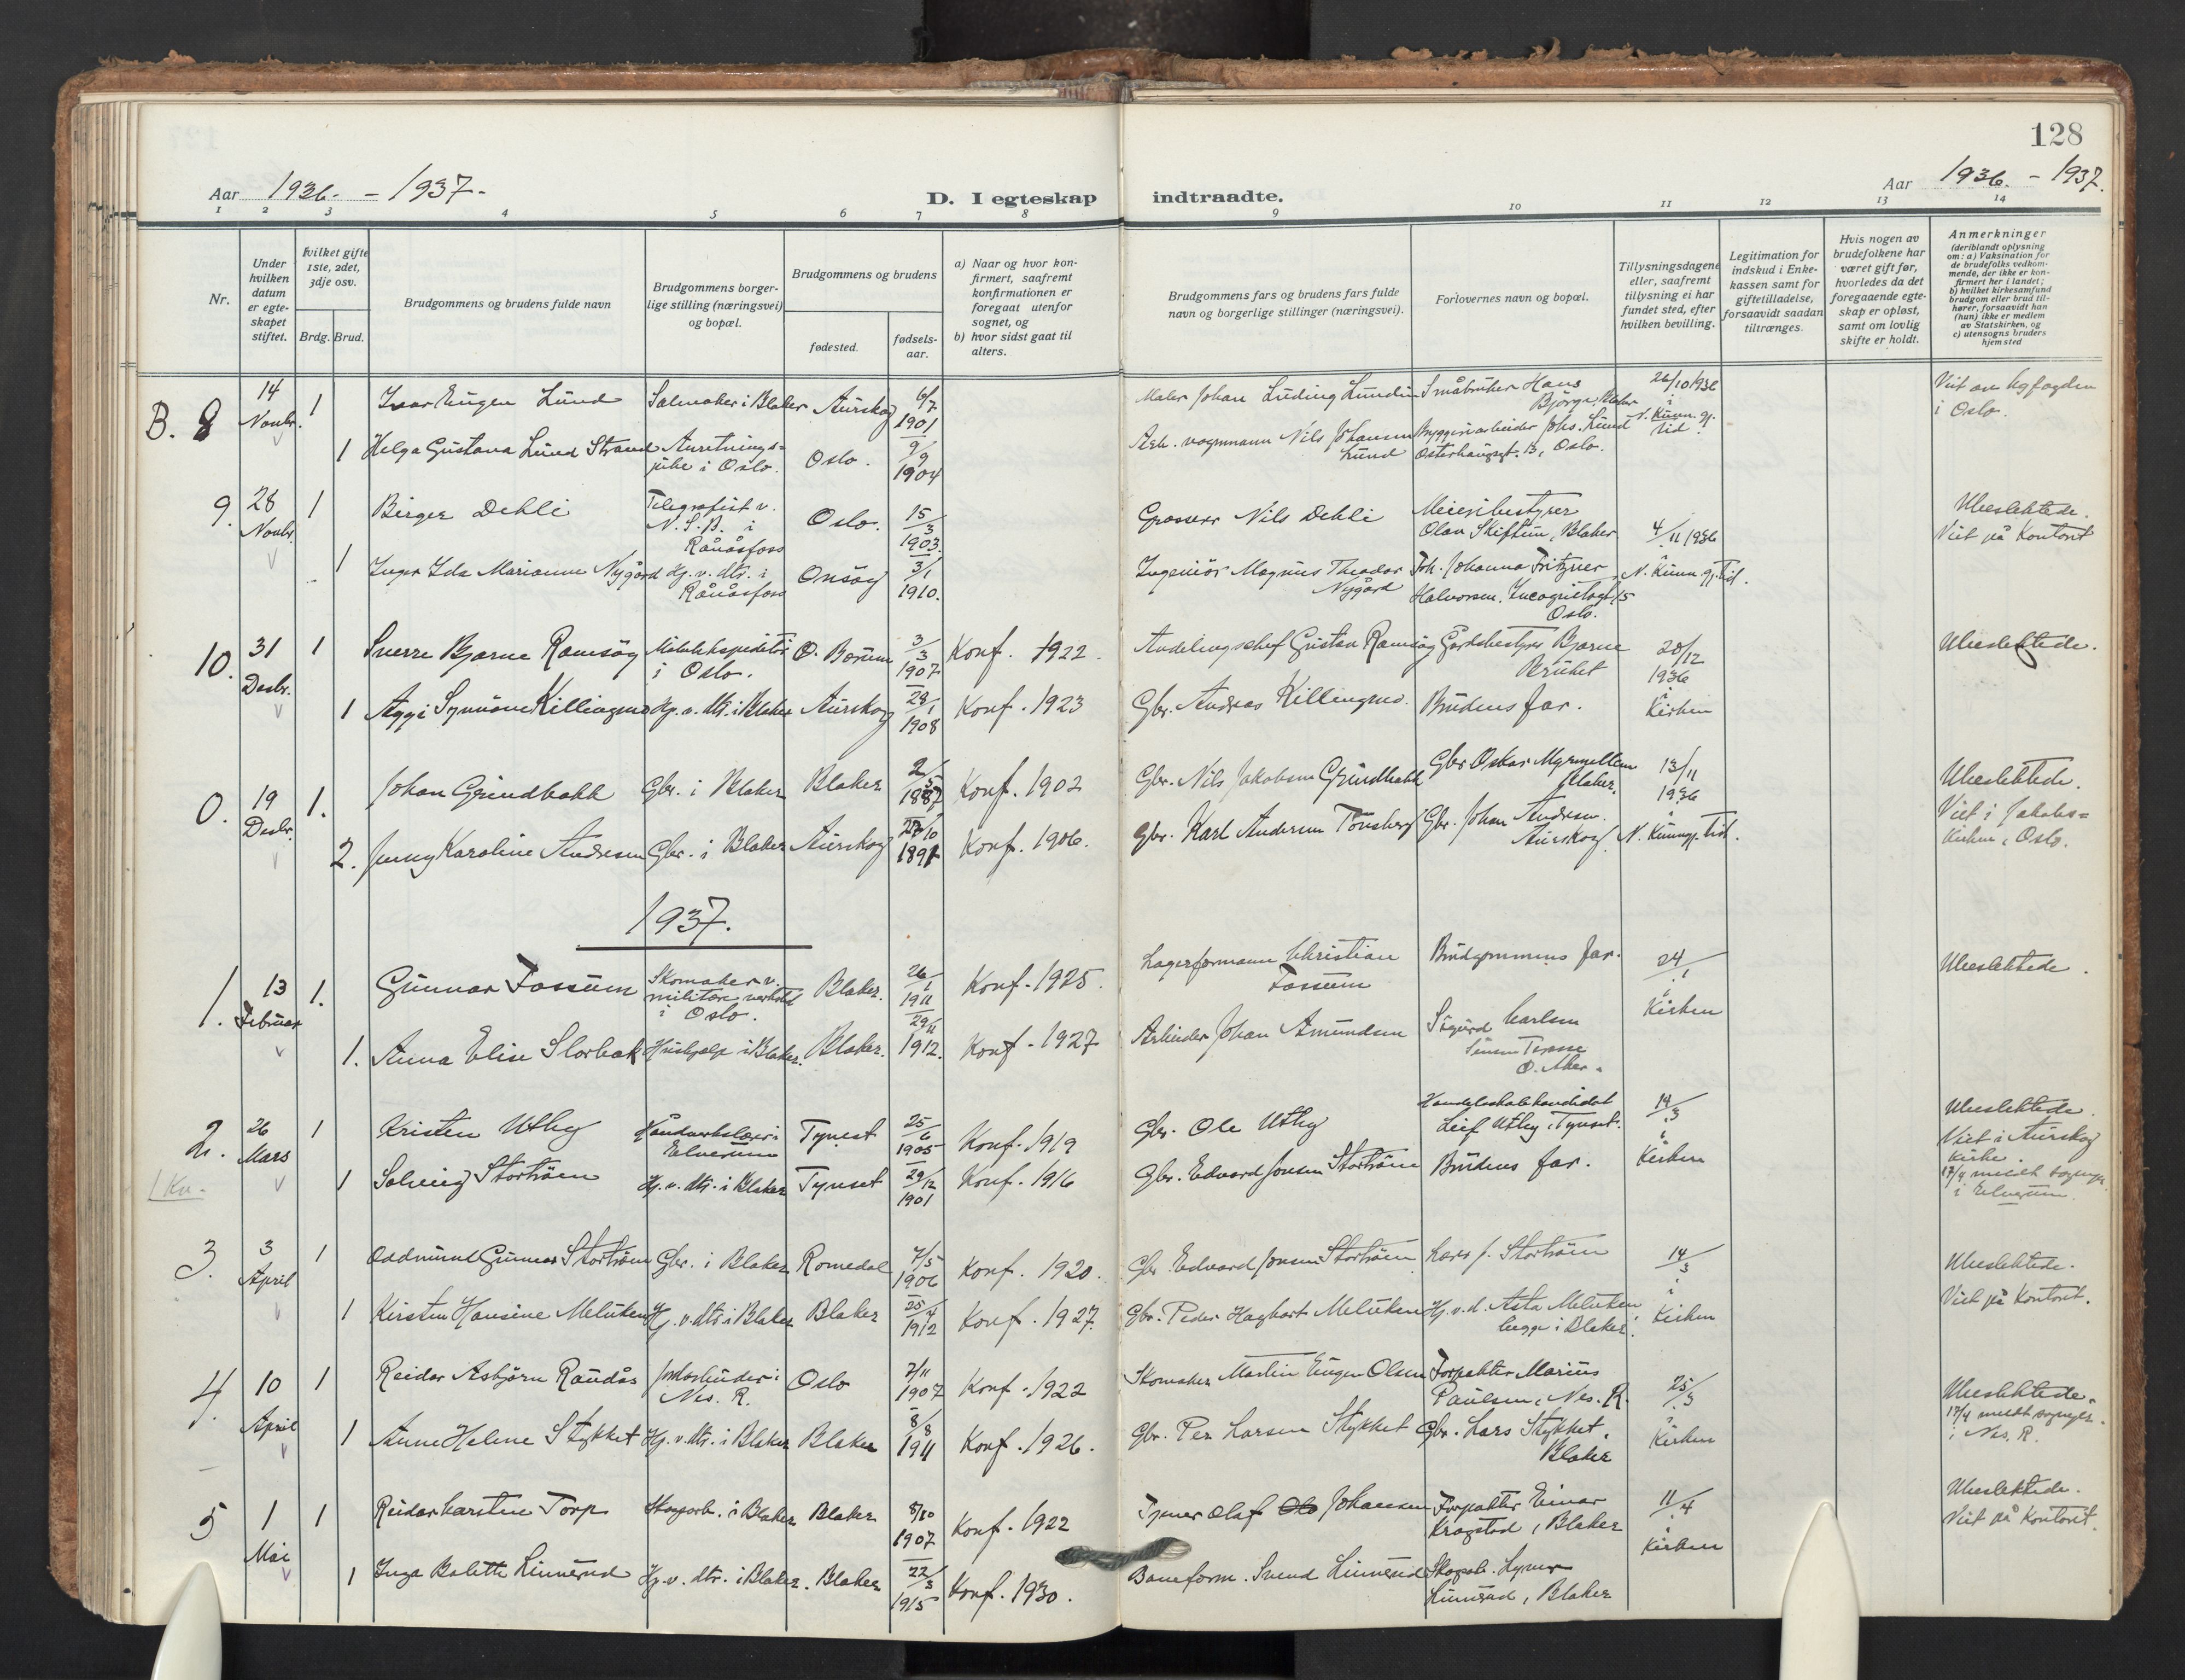 128
Aar 1936. - 1937.
D. I egteskap indtraadte.
Aar 1936. - 1937.
1 2 3 4 5 6 7 8 9 10 11 12 13 14
Nr.
Under hvilken datum er egteskapet stiftet.
hvilket gifte 1ste, 2det, 3dje osv.
Brdg. Brud.
Brudgommens og brudens fulde navn
Brudgommens borgerlige stilling (næringsvei) og bopæl.
Brudgommens og brudens
fødested.
fødselsaar.
a) Naar og hvor konfirmert, saafremt konfirmationen er foregaat utenfor sognet, og
b) hvor sidst gaat til alters.
Brudgommens fars og brudens fars fulde navn og borgerlige stillinger (næringsvei).
Forlovernes navn og bopæl.
Tillysningsdagene eller, saafremt tillysning ei har fundet sted, efter hvilken bevilling.
Legitimation for indskud i Enkekassen samt for giftetilladelse, forsaavidt saadan tiltrænges.
Hvis nogen av brudefolkene har været gift før, hvorledes da det foregaaende egteskap er opløst, samt om lovlig skifte er holdt.
Anmerkninger (deriblandt oplysning om: a) Vaksination for de brudefolks vedkommende, der ikke er konfirmert her i landet; b) hvilket kirkesamfund brudgom eller brud tilhører, forsaavidt han (hun) ikke er medlem av Statskirken, og c) utensogns bruders hjemsted
B. 8 14 Novbr. 1 Ivar Eugen Lund Salmaker i Blaker Aurskog 6/7 1901 Maler Johan Luding Lundin Småbruker Hans Bjørge, Blaker 26/10 1936 i N. Kunn. gj. tid. Viet av byfogden i Oslo.
1 Helga Gustava Lund Strand Anretningspike i Oslo. Oslo. 9/9 1904 Arb. vognmann Nils Johansen Lund Bryggeriarbeider Johs. Lund Osterhausgt. 13, Oslo.
9. 28 Novbr. 1 Birger Dehli Telegrafist v. N. S. B. i Rånåsfoss Oslo. 15/3 1903. Grosserer Nils Dehli Meieribestyrer Olav Skiftun, Blaker 4/11 1936 N. Kunn. gj. tid. Ubeslektede. Viet på Kontoret
1 Inger Ida Marianne Nygård Hj. v. dtr. i Rånåsfoss Onsøy 3/1 1910. Ingeniør Magnus Theodor Nygård Frk. Johanna Fritzner Halvorsen. Incognitogt. 15 Oslo.
10. 31 Desbr. 1 Sverre Bjarne Ramsøy i Oslo. Ø. Bærum 3/3 1907 Konf. 1922. Avdelingschef Gustav Ramsøy Gårdsbestyrer Bjarne Bruket 20/12 1936 i Kirken Ubeslektede.
1 Aggi Synnøve Killingmo Hj. v. dtr. i Blaker Aurskog 28/1 1908 Konf. 1923 Gbr. Andreas Killingmo. Brudens far.
0. 19 Desbr. 1. Johan Grindbakk Gbr. i Blaker Blaker 2/5 1887 Konf. 1902 Gbr. Nils Jakobsen Grindbakk Gbr Oskar Myrmellem Blaker. 13/11 1936 i N. Kunngj. tid. Ubeslektede. Viet i Jakobskirken, Oslo.
2. Jenny Karoline Andresen Gbr. i Blaker Aurskog 1891 Konf. 1906. Gbr. Karl Andersen Tønsberg Gbr. Johan Andresen. Aurskog
1937.
1. 13 Februar 1. Gunnar Fossum Skomaker v. militære verksted i Oslo. Blaker. 26/1 1911 Konf. 1925. Lagerformann Christian Fossum Brudgommens far. 24/1 i Kirken Ubeslektede.
1. Anna Elise Slorbak Hushjelp i Blaker. Blaker. 29/11 1912. Konf. 1927 Arbeider Johan Amundsen Sigurd Carlsen Sinsen Terasse Ø. Aker.
2. 26 Mars 1 Kristen Utby Håndverkslærer i Elverum Tynset 25/6 1905 Konf. 1919 Gbr. Ole Utby Handelsskolekandidat Leif Utby, Tynset. 14/3 i Kirken Ubeslektede. Viet i Aurskog kirke. 17/4 meldt sognepr. i Elverum.
1 Kv.
1 Solveig Storstrøm Hj. v. dtr. i Blaker Tynset 29/12 1901 Konf. 1916 Gbr. Edvard Jonsen Storstrøm Brudens far.
3. 3 April 1 Oddmund Gunnar Storstrøm Gbr. i Blaker Romedal 7/5 1906 Konf. 1920. Gbr. Edvard Jonsen Storstrøm Lars J. Storstrøm 14/3 i Kirken Ubeslektede. Viet på Kontoret.
1 Kirsten Hansine Melnken Hj. v. dtr. i Blaker Blaker 25/4 1912 Konf. 1927. Gbr. Peder Hagbart Melnken Hj. v. d. Asta Melnken begge i Blaker.
4. 10 April 1 Reidar Asbjørn Raudås Jordarbeider i Nes. R. Oslo 2/11 1907 Konf. 1922 Skomaker Martin Eugen Olsen Forpakter Marius Paulsen, Nes. R. 25/3 i Kirken Ubeslektede. 17/4 meldt sognepr. i Nes. R.
1 Anne Helene Stykket Hj. v. dtr. i Blaker Blaker 8/8 1911 Konf. 1926. Gbr. Per Larsen Stykket Gbr. Lars Stykket, Blaker
5 1 Mai 1 Reidar Carsten Torp Skogsarb. i Blaker Blaker 8/10 1907 Konf. 1922 Olaf Johansen Forpakter Einar Kragstad, Blaker 11/4 i Kirken Ubeslektede. Viet på Kontoret.
1 Inga Bolette Linnerud Hj. v. dtr. i Blaker. Blaker 22/3 1915 Konf. 1930. Baneform. Svend Linnerud Skogsarb. Linnerud, Blaker